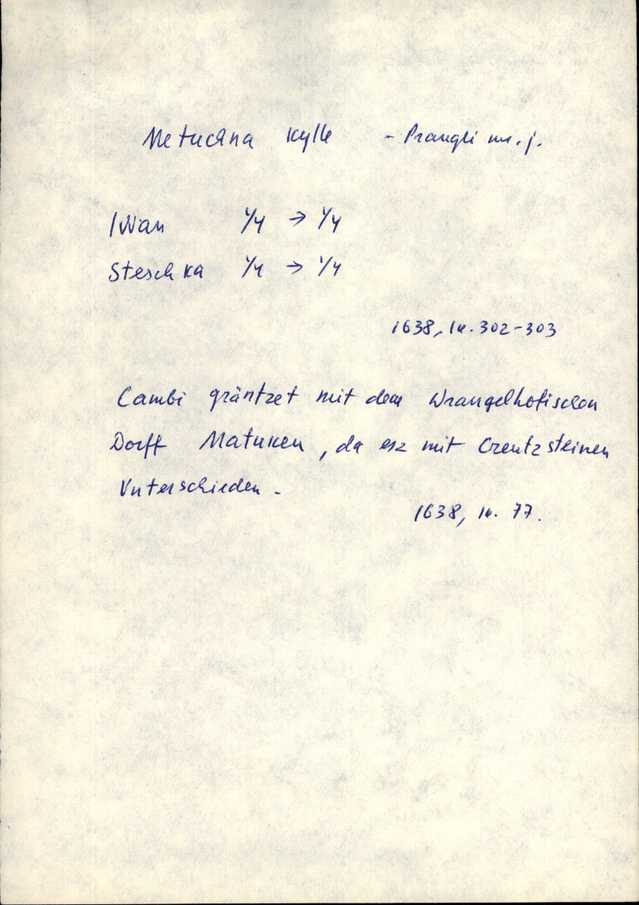 Metuckna Kylle - Prangli m. j.
Iwan 1/4 → 1/4
Steschka 1/4 → 1/4
1638, lk. 302-303
Cambi gräntzet mit dem Wrangelhofischen
Dorff Matuken, da esz mit Creutzsteinen
Vnterschieden.
1638, lk. 77.